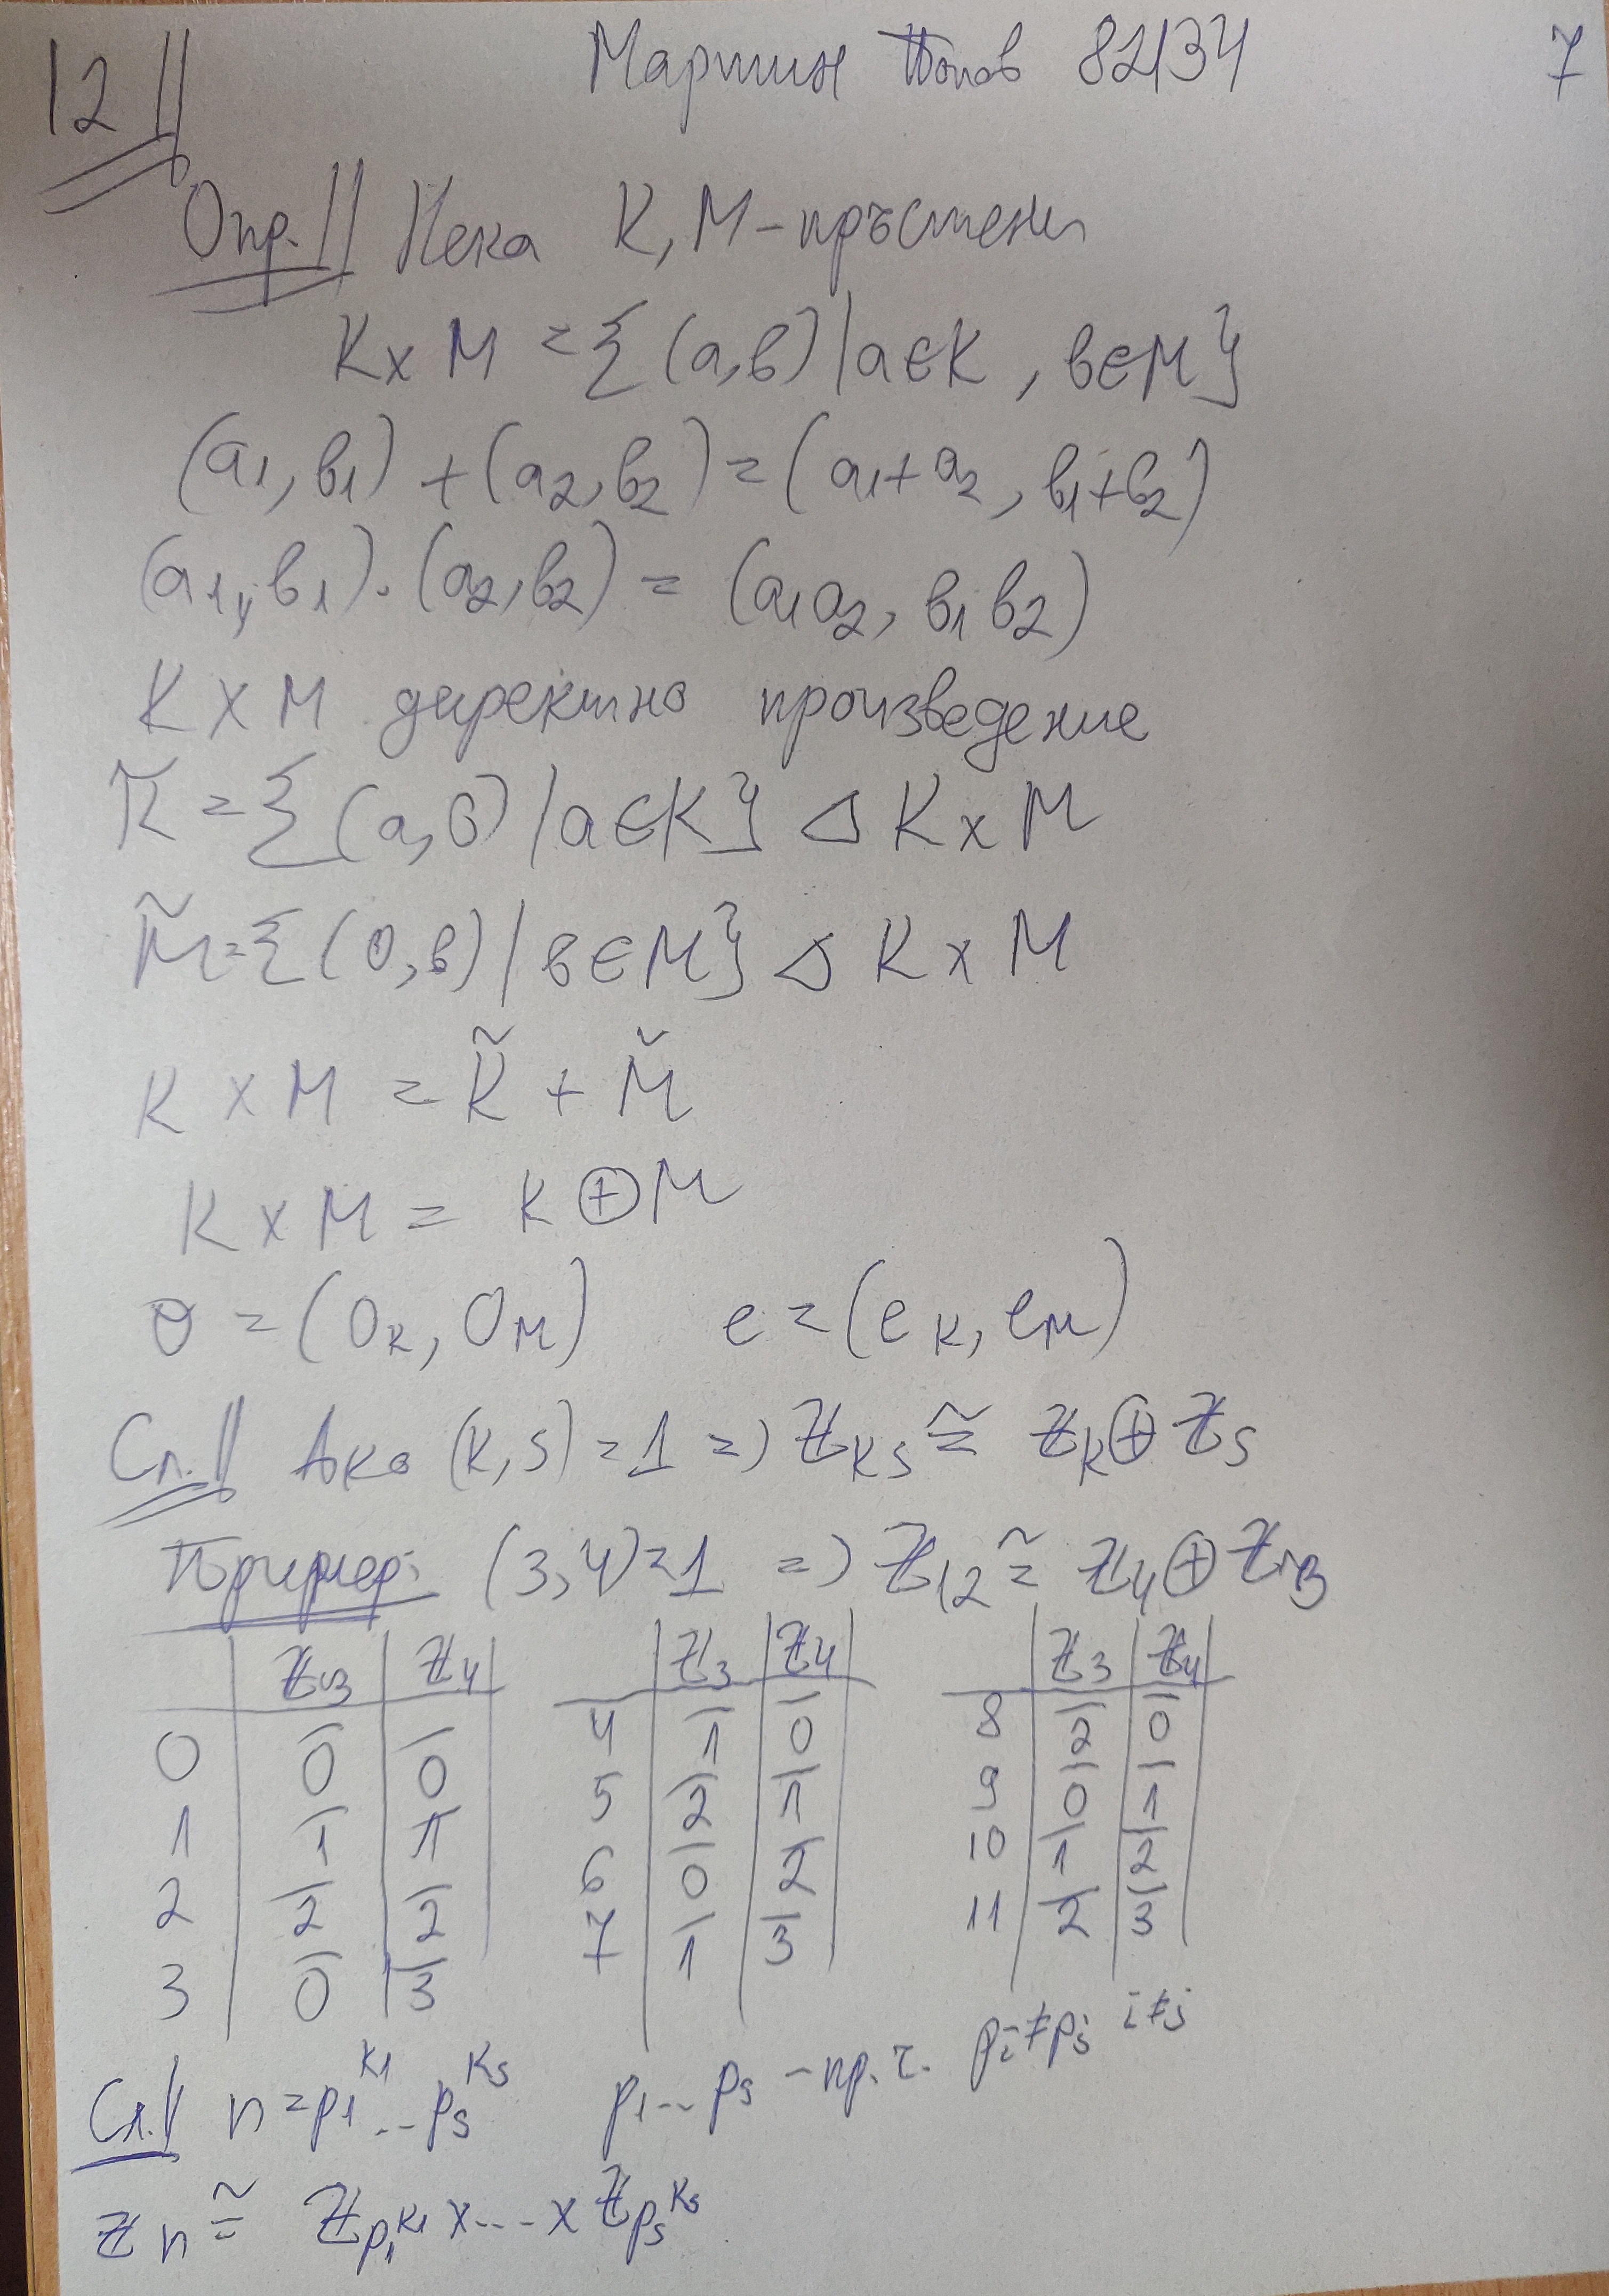 12 || Мартин Попов 82134 7
Опр.|| Нека K, M - пръстени
K x M = {(a,b) | a ∈ K, b ∈ M}
(a1, b1) + (a2, b2) = (a1 + a2, b1 + b2)
(a1, b1) . (a2, b2) = (a1a2, b1b2)
K x M директно произведение
K̃ = {(a,0) | a ∈ K} ⊲ K x M
M̃ = {(0,b) | b ∈ M} ⊲ K x M
K x M = K̃ + M̃
K x M = K ⊕ M
0 = (0K, 0M) e = (eK, eM)
Сл.|| Ако (k,s) = 1 => ℤks ≅ ℤk ⊕ ℤs
Пример: (3,4) = 1 => ℤ12 ≅ ℤ4 ⊕ ℤ3
ℤ3 ℤ4 ℤ3 ℤ4 ℤ3 ℤ4
0 0̅ 0̅ 4 1̅ 0̅ 8 2̅ 0̅
1 1̅ 1̅ 5 2̅ 1̅ 9 0̅ 1̅
2 2̅ 2̅ 6 0̅ 2̅ 10 1̅ 2̅
3 0̅ 3̅ 7 1̅ 3̅ 11 2̅ 3̅
Сл.|| n = p1^k1 ... ps^ks p1 ... ps - пр. ч. pi ≠ pj i ≠ j
ℤn ≅ ℤp1^k1 x ... x ℤps^ks